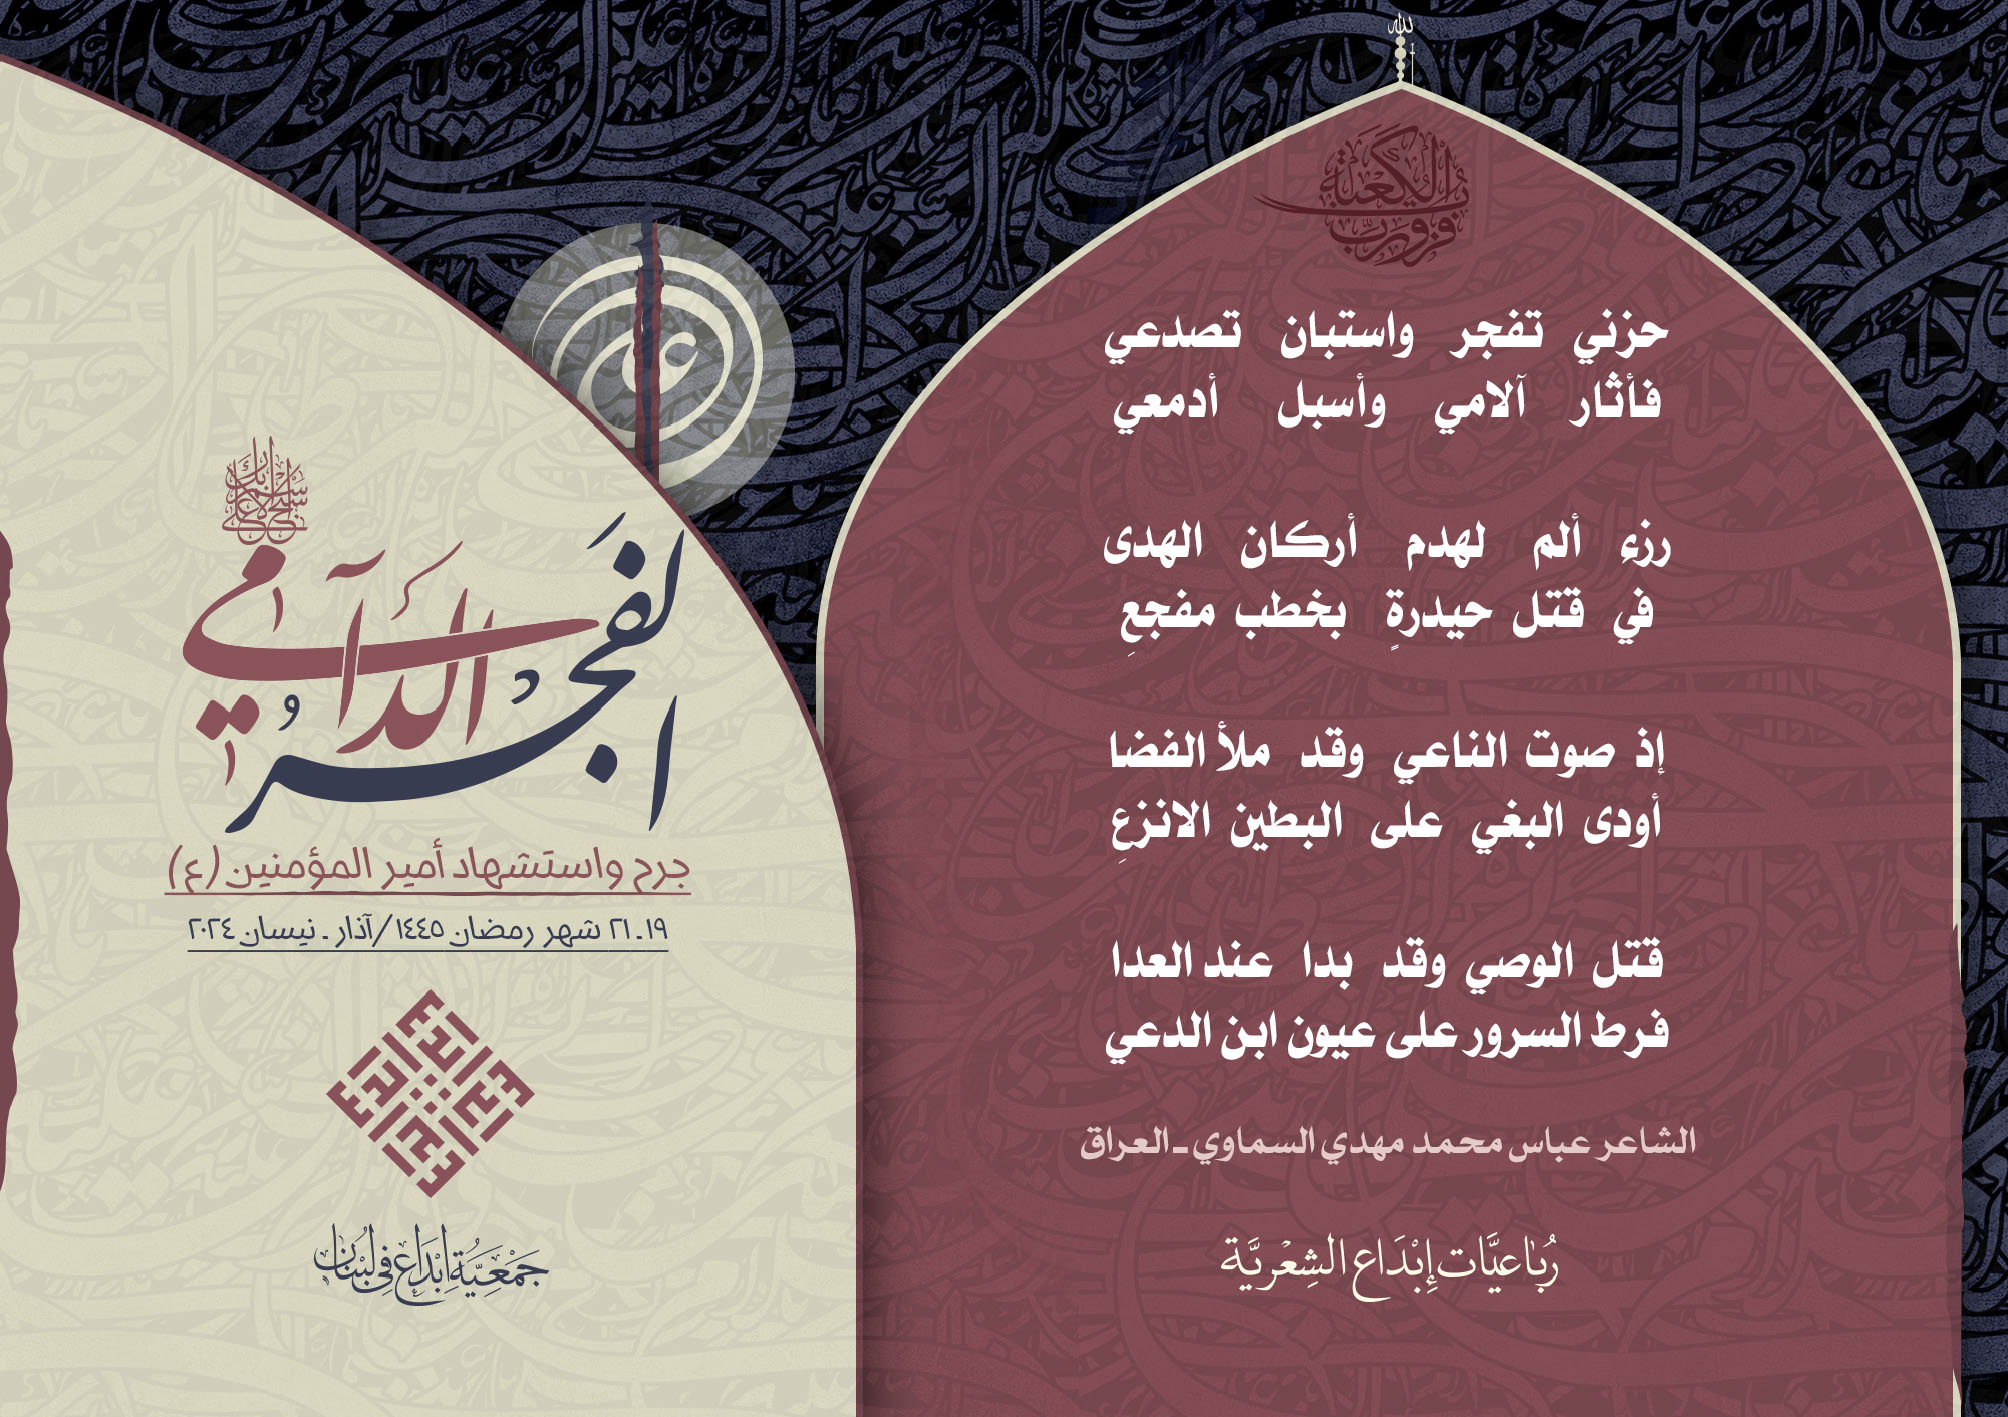 الله
فزت ورب الكعبة
حزني تفجر واستبان تصدعي
فأثار آلامي وأسبل أدمعي
رزء ألم لهدم أركان الهدى
في قتل حيدرةٍ بخطب مفجعِ
إذ صوت الناعي وقد ملأ الفضا
أودى البغي على البطين الانزعِ
قتل الوصي وقد بدا عند العدا
فرط السرور على عيون ابن الدعي
الشاعر عباس محمد مهدي السماوي - العراق
رُبَاعيَّات إِبْدَاع الشِعْريَّة
علي
سبح اسم ربك الأعلى
الفَجْرُ الدَّامي
جرح واستشهاد أمير المؤمنين (ع)
١٩ - ٢١ شهر رمضان ١٤٤٥ / آذار - نيسان ٢٠٢٤
إبداع إبداع إبداع إبداع
جَمْعِيَّة إِبْدَاع في لبْنَان